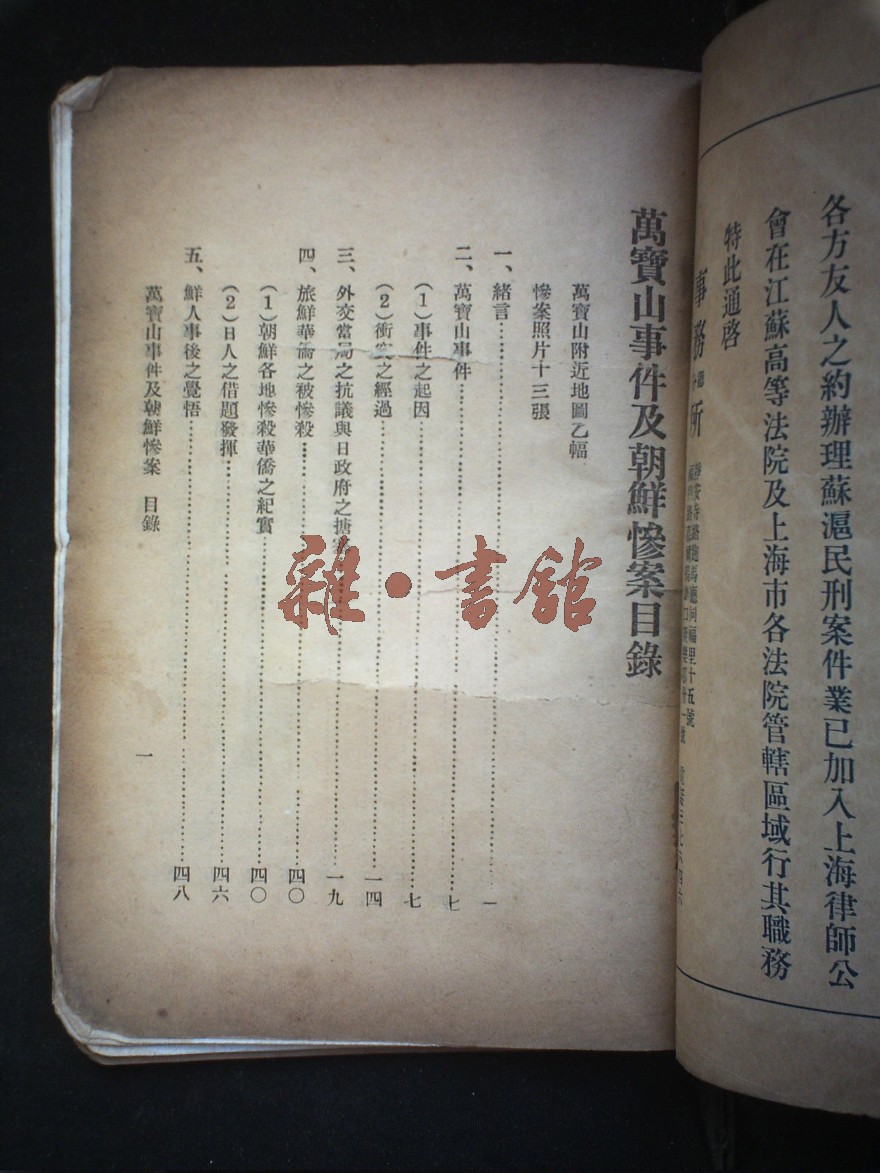 各方友人之約辦理蘇滬民刑案件業已加入上海律師公
會在江蘇高等法院及上海市各法院管轄區域行其職務
特此通啓
事務所
萬寶山事件及朝鮮慘案目錄
萬寶山附近地圖乙幅
慘案照片十三張
一、緒言⋯⋯一
二、萬寶山事件⋯⋯七
(1)事件之起因⋯⋯七
(2)衝突之經過⋯⋯一四
三、外交當局之抗議與日政府之搪⋯⋯一九
四、旅鮮華僑之被慘殺⋯⋯四〇
(1)朝鮮各地慘殺華僑之紀實⋯⋯四〇
(2)日人之借題發揮⋯⋯四六
五、鮮人事後之覺悟⋯⋯四八
萬寶山事件及朝鮮慘案 目錄 一
雜·書館